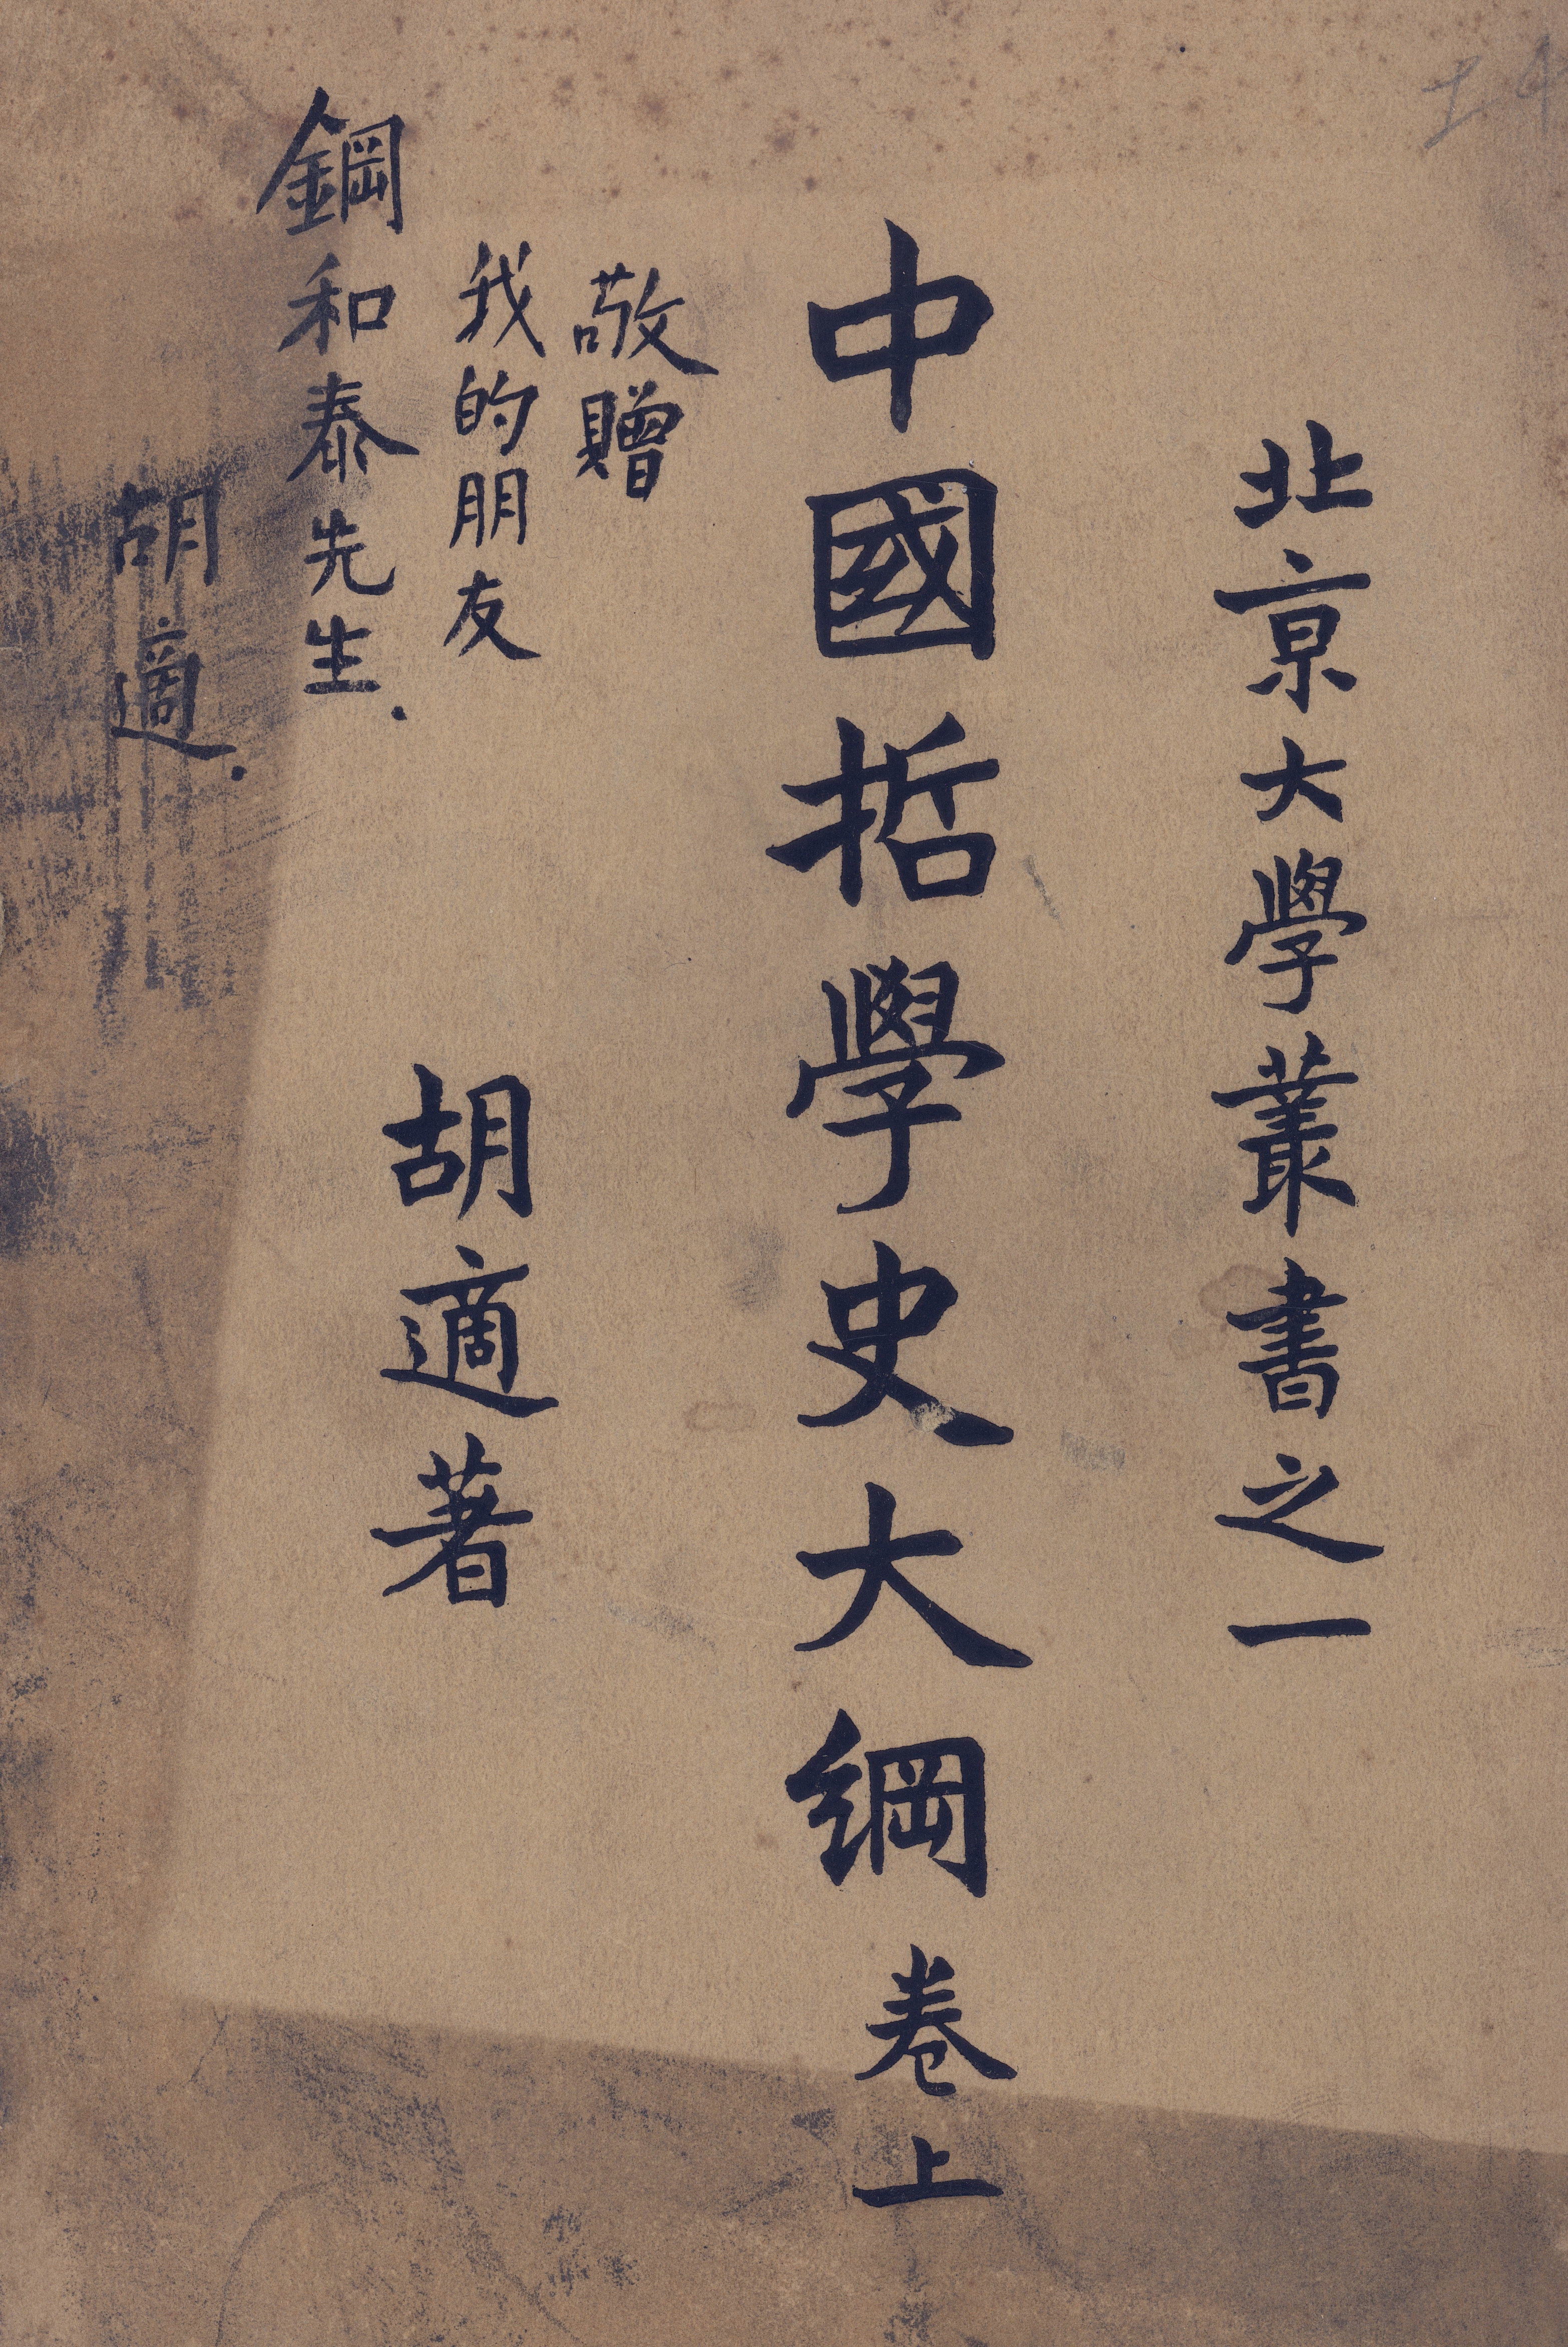 北京大學叢書之一
中國哲學史大綱 卷上
敬贈
我的朋友
鋼和泰先生.
胡適.
胡適著